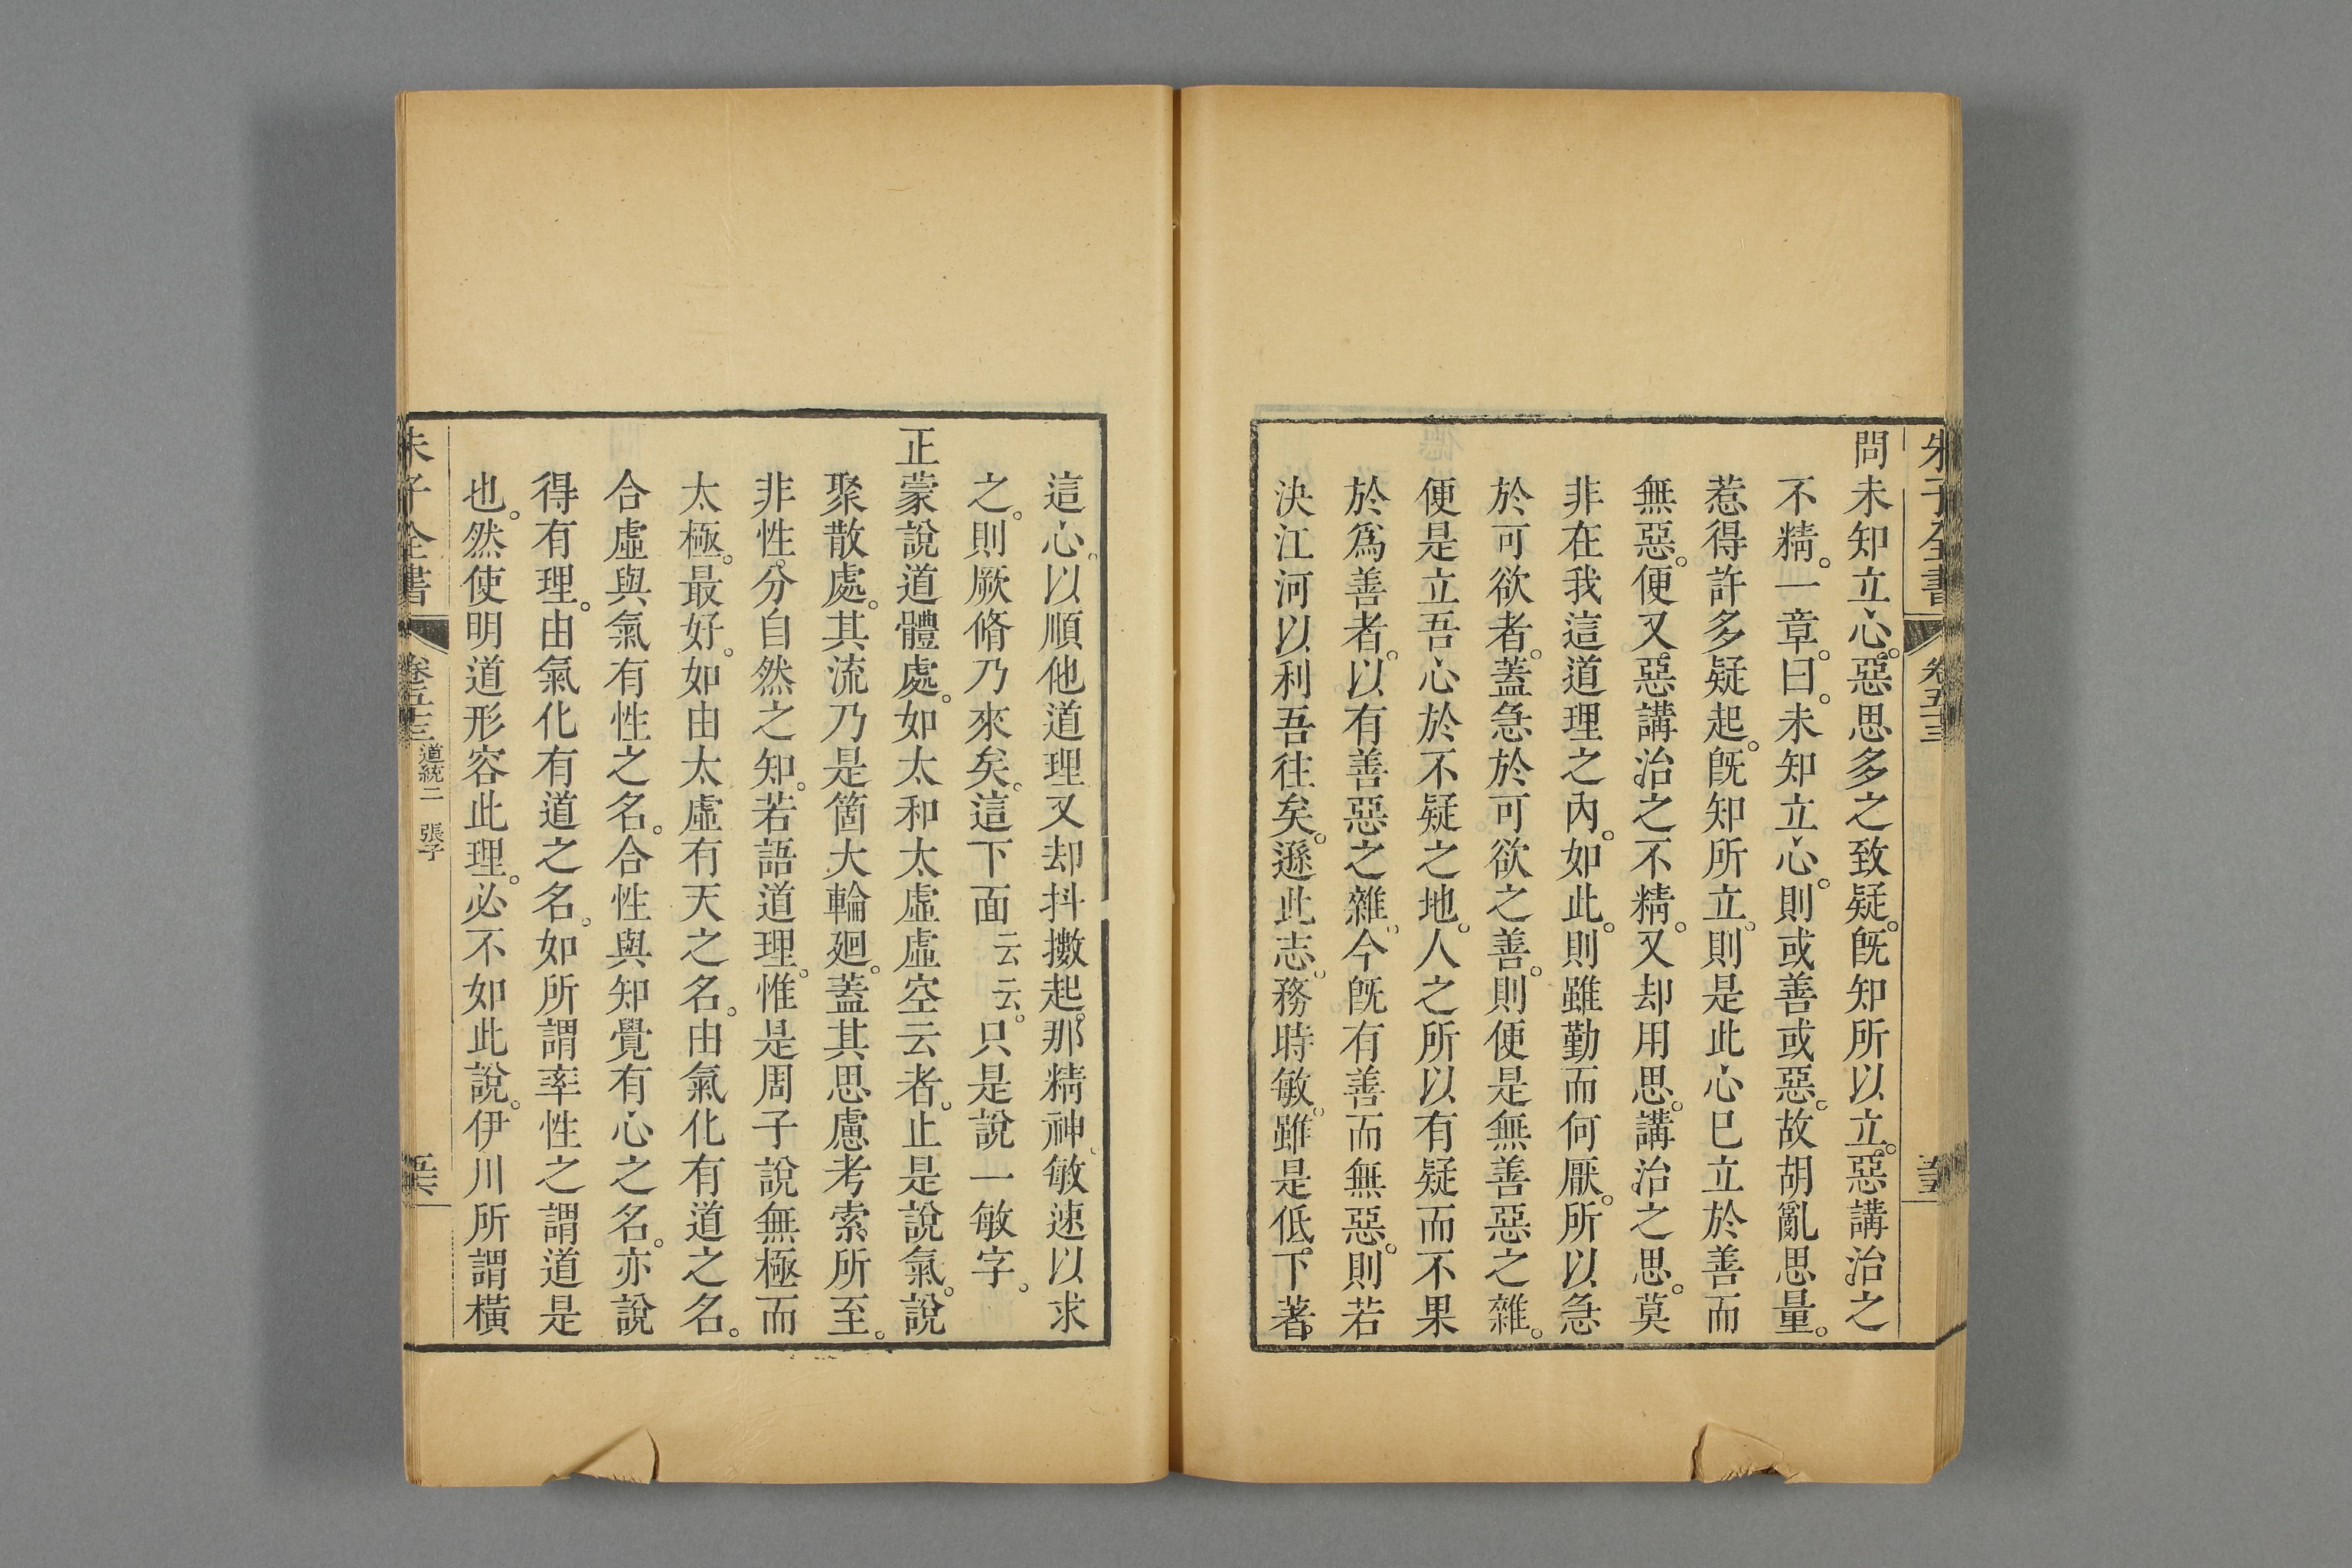 朱子全書 卷五十三
問未知立心。惡思多之致疑。旣知所以立。惡講治之
不精。一章。曰。未知立心。則或善或惡。故胡亂思量。
惹得許多疑起。旣知所立。則是此心已立於善而
無惡。便又惡講治之不精。又却用思。講治之思。莫
非在我這道理之內。如此。則雖勤而何厭。所以急
於可欲者。蓋急於可欲之善。則便是無善惡之雜。
便是立吾心於不疑之地。人之所以有疑而不果
於爲善者。以有善惡之雜。今旣有善而無惡。則若
決江河以利吾往矣。遜此志。務時敏。雖是低下著。
這心。以順他道理又却抖擻起。那精神、敏速以求
之。則厥脩乃來矣。這下面云云。只是說一敏字。
正蒙說道體處。如太和太虛虛空云者。止是說氣。說
聚散處。其流乃是箇大輪廻。蓋其思慮考索。所至。
非性。分自然之知。若語道理。惟是周子說無極而
太極。最好。如由太虛有天之名。由氣化有道之名。
合虛與氣有性之名。合性與知覺有心之名。亦說
得有理。由氣化有道之名。如所謂率性之謂道是
也。然使明道形容此理。必不如此說。伊川所謂橫
朱子全書 卷五十三 道統二 張子